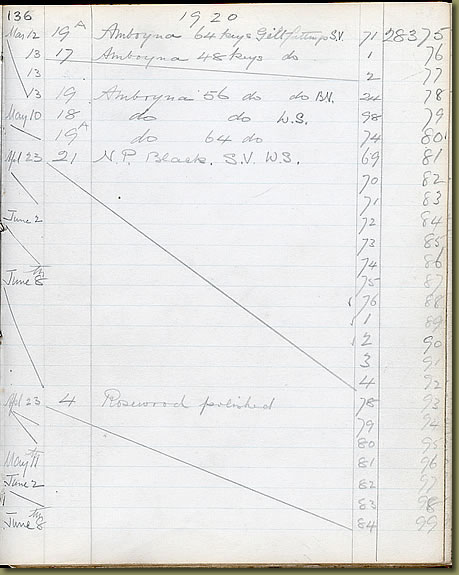 136 1920
Mar 12 19A Amboyna 64 keys Gilt fittings S.V. 71 28375
13 17 Amboyna 48 keys do 1 76
13 2 77
13 19 Amboyna 56 do do B.V. 24 78
May 10 18 do do W.S. 98 79
19A do 64 do 74 80
Apl 23 21 N.P. Black. S.V. W.S. 69 81
70 82
71 83
June 2 72 84
73 85
74 86
June 8th 75 87
76 88
1 89
2 90
3 91
4 92
Apl 23 4 Rosewood polished 78 93
79 94
80 95
May 11th 81 96
June 2 82 97
83 98
June 8th 84 99